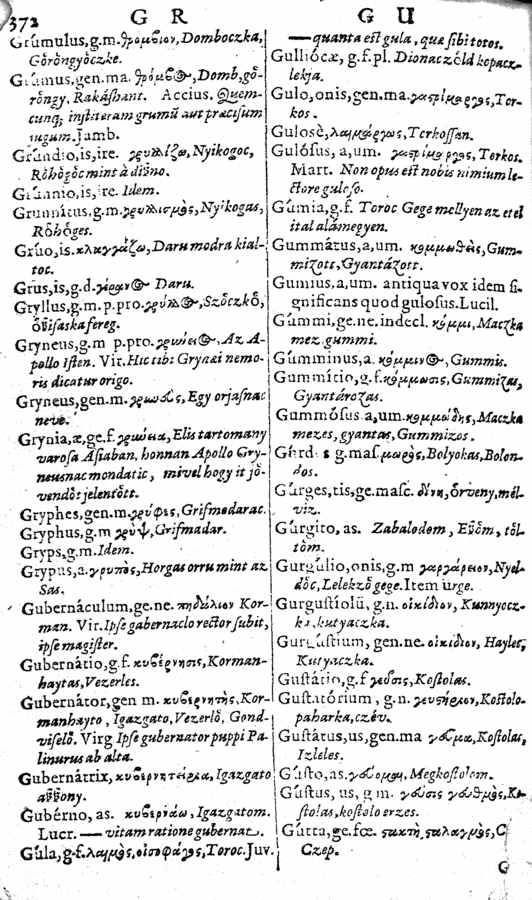 372 G R
Grúmulus, g.m. θρομβίον, Domboczka,
Göröngyöczke.
Grúmus, gen. ma. θρόμβος, Domb, gö-
röngy, Rakáshant. Accius. Quem-
cunq; institeram grumũ aut præcisum
iugum. Iamb.
Grúndio, is, ire. γρυλλίζω, Nyikogoc,
Röhögöc mint à diſno.
Grúnnio, is, ire. Idem.
Grunnitus, g.m. γρυλλισμὸς, Nyikogas,
Röhöges.
Gruo, is. κλαγγάζω, Daru modra kial-
toc.
Grus, is, g.d. γέρανος Daru.
Gryllus, g.m. p. pro. γρύλλος, Szöczkö,
fereg.
Gryneus, g.m p. pro. γρώειος, Az A-
pollo Isten. Vir. Hic tibi Grynæi nemo-
ris dicatur origo.
Gryneus, gen. m. Egy orjaſnac
neve.
Grynia, æ, ge. f. Elis tartomany
varoſa Aſiaban, honnan Apollo Gry-
neusnac mondatic, mivel hogy it jö-
vendöt jelentött.
Gryphes, gen. m. γρύφες, Grifmadarac.
Gryphus, g.m γρὺψ, Grifmadar.
Gryps, g.m. Idem.
Grypus, a. γρυπὸς, Horgas orru mint az
Sas.
Gubernáculum, ge. ne. πηδάλιον Kor-
man. Vir. Ipſe gubernaclo rector ſubit,
ipſe magiſter.
Gubernàtio, g.f. κυβέρνησις, Korman-
haytas, Vezerles.
Gubernàtor, gen m. κυβερνητὴς, Kor-
manhayto, Igazgato, Vezerlö, Gond-
viſelö. Virg Ipſe gubernator puppi Pa-
linurus ab alta.
Gubernàtrix, κυβερνήτειρα, Igazgato
aſſzony.
Gubérno, as. κυβερνάω, Igazgatom.
Lucr. — vitam ratione gubernat.
Gúla, g.f. λαιμὸς, οἰσοφάγος, Toroc. Juv.
G U
— quanta eſt gula, quæ ſibi totos.
Gulliócæ, g.f. pl. Dionac zöld kopacz-
lekja.
Gulo, onis, gen. ma. γαστρίμαργος, Tor-
kos.
Gulosè, λαιμάργως, Torkoſſan.
Gulósus, a, um. γαστρίμαργος, Torkos.
Mart. Non opus eſt nobis nimium le-
ctore guloſo.
Gúmia, g.f. Toroc Gege mellyen az etel
ital alámegyen.
Gummàtus, a, um. Gum-
mizott, Gyantázott.
Gumius, a, um. antiqua vox idem ſi-
gnificans quod guloſus. Lucil.
Gúmmi, ge. ne. indecl. κόμμι, Maczka
mez, gummi.
Gumminus, a. κόμμινος, Gummis.
Gummítio, g.f. κόμμωσις, Gummizas,
Gyantározas.
Gummósus a, um. κομμώδης, Maczka
mezes, gyantas, Gummizos.
Gurdus g mas. μωρὸς, Bolyokas, Bolon-
dos.
Gúrges, tis, ge. maſc. δίνη, örveny, mél-
viz.
Gúrgito, as. Zabalodom, Eſöm, töl-
töm.
Gurgúlio, onis, g.m γαργάρεων, Nyel-
döc, Lelekzö gege. Item ürge.
Gurguſtiolũ, g.n. οἰκίδιον, Kunnyocz-
ka, kutyaczka.
Gurguſtium, gen. ne. οἰκίδιον, Haylec,
Kutyaczka.
Guſtátio, g.f γεῦσις, Koſtolas.
Guſtatórium, g.n. γευστήριον, Koſtolo-
paharka, czév.
Guſtátus, us, gen. ma γεῦμα, Koſtolas,
Izleles.
Gúſto, as. γεύομαι, Megkoſtolom.
Gúſtus, us, g m. γεῦσις γευθμὸς, Ko-
ſtolas, koſtolo erzes.
Gútta, ge. fœ. στακτὴ, σταλαγμὸς, C
Czep.
G